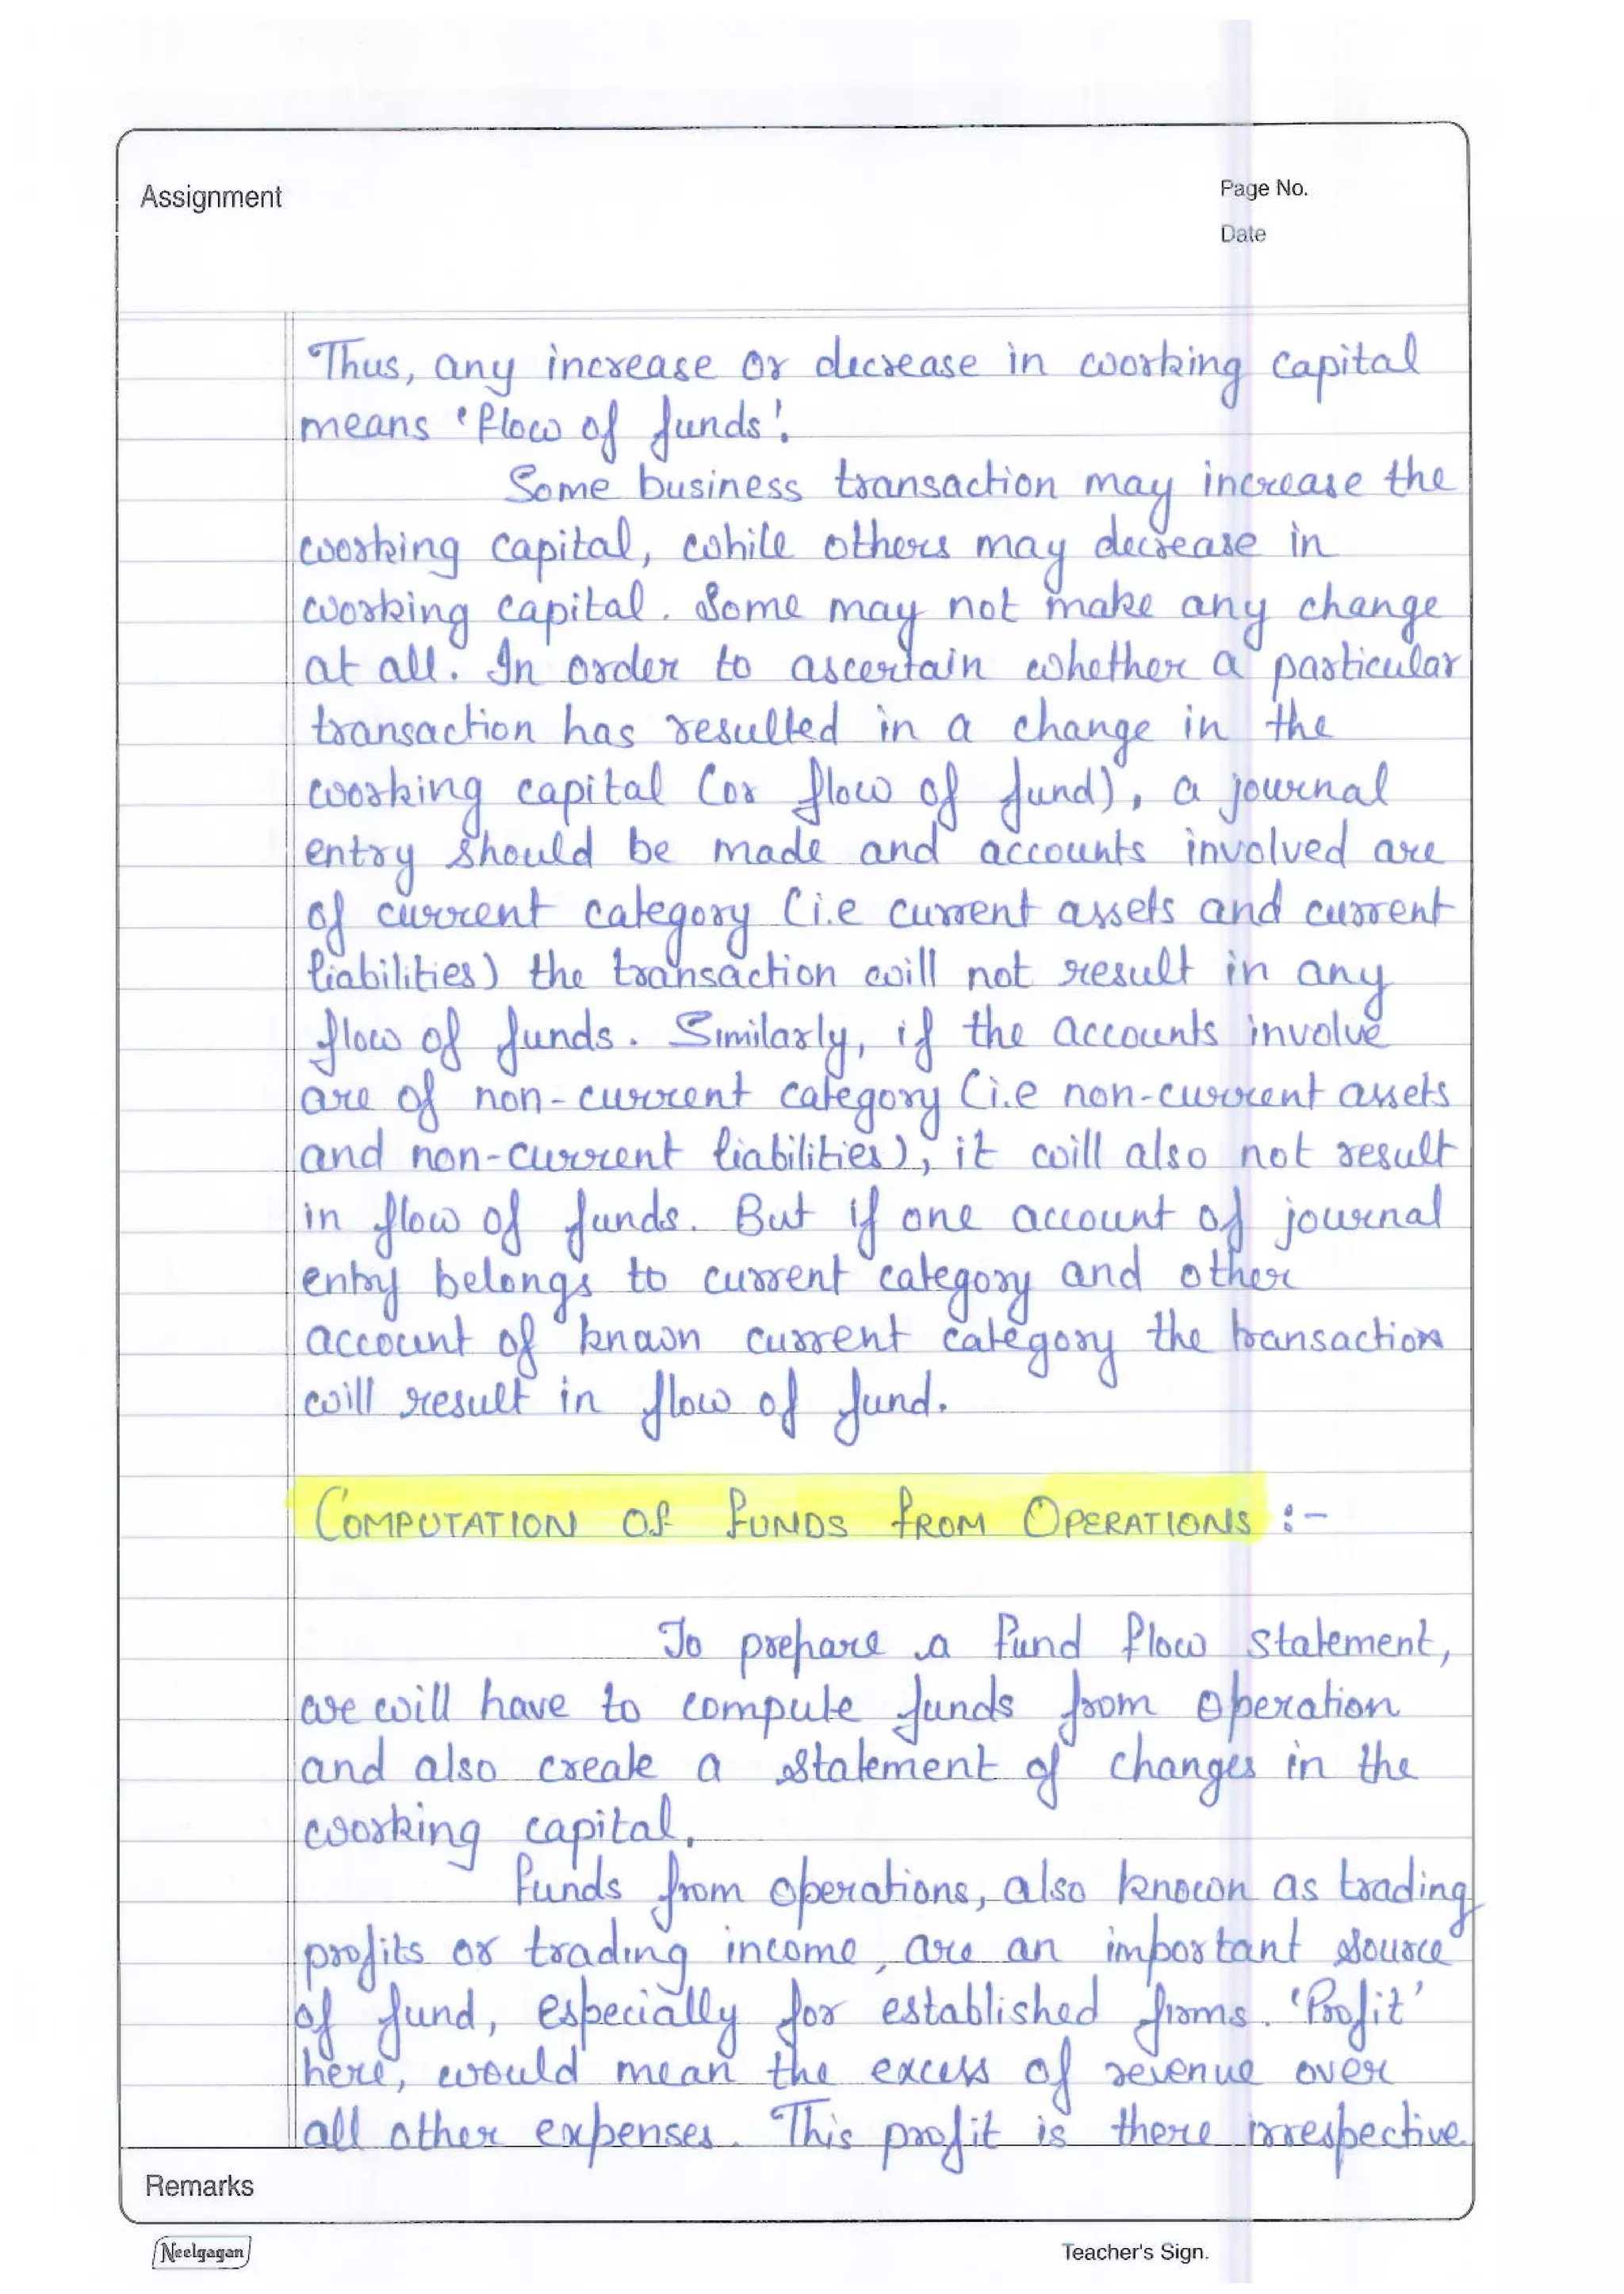 Assignment
Page No.
Date
Thus, any increase or decrease in working capital
means 'flow of funds'.
Some business transaction may increase the
working capital, while others may decrease in
working capital. Some may not make any change
at all. In order to ascertain whether a particular
transaction has resulted in a change in the
working capital (or flow of fund), a journal
entry should be made and accounts involved are
of current category (i.e current assets and current
liabilities) the transaction will not result in any
flow of funds. Similarly, if the accounts involve
are of non-current category (i.e non-current assets
and non-current liabilities), it will also not result
in flow of funds. But if one account of journal
entry belongs to current category and other
account of known current category the transaction
will result in flow of fund.
COMPUTATION OF FUNDS FROM OPERATIONS :-
To prepare a Fund Flow Statement,
we will have to compute funds from operation
and also create a statement of changes in the
working capital.
Funds from operations, also known as trading
profits or trading income, are an important source
of fund, especially for established firms. 'Profit'
here, would mean the excess of revenue over
all other expenses. This profit is there irrespective
Remarks
Neelgagan
Teacher's Sign.